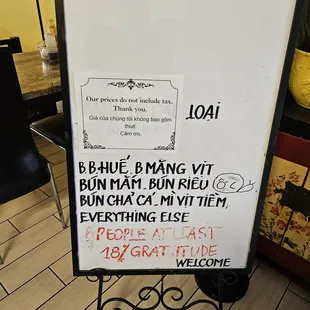 Our prices do not include tax.
Thank you.
Giá của chúng tôi không bao gồm
thuế
Cảm ơn.
LOẠI
B.B.HUẾ, B MĂNG VỊT
BÚN MẮM. BÚN RIÊU ỐC
BÚN CHẢ CÁ, MÌ VỊT TIỀM,
EVERYTHING ELSE
PEOPLE AT LEAST
18% GRATITUDE
WELCOME